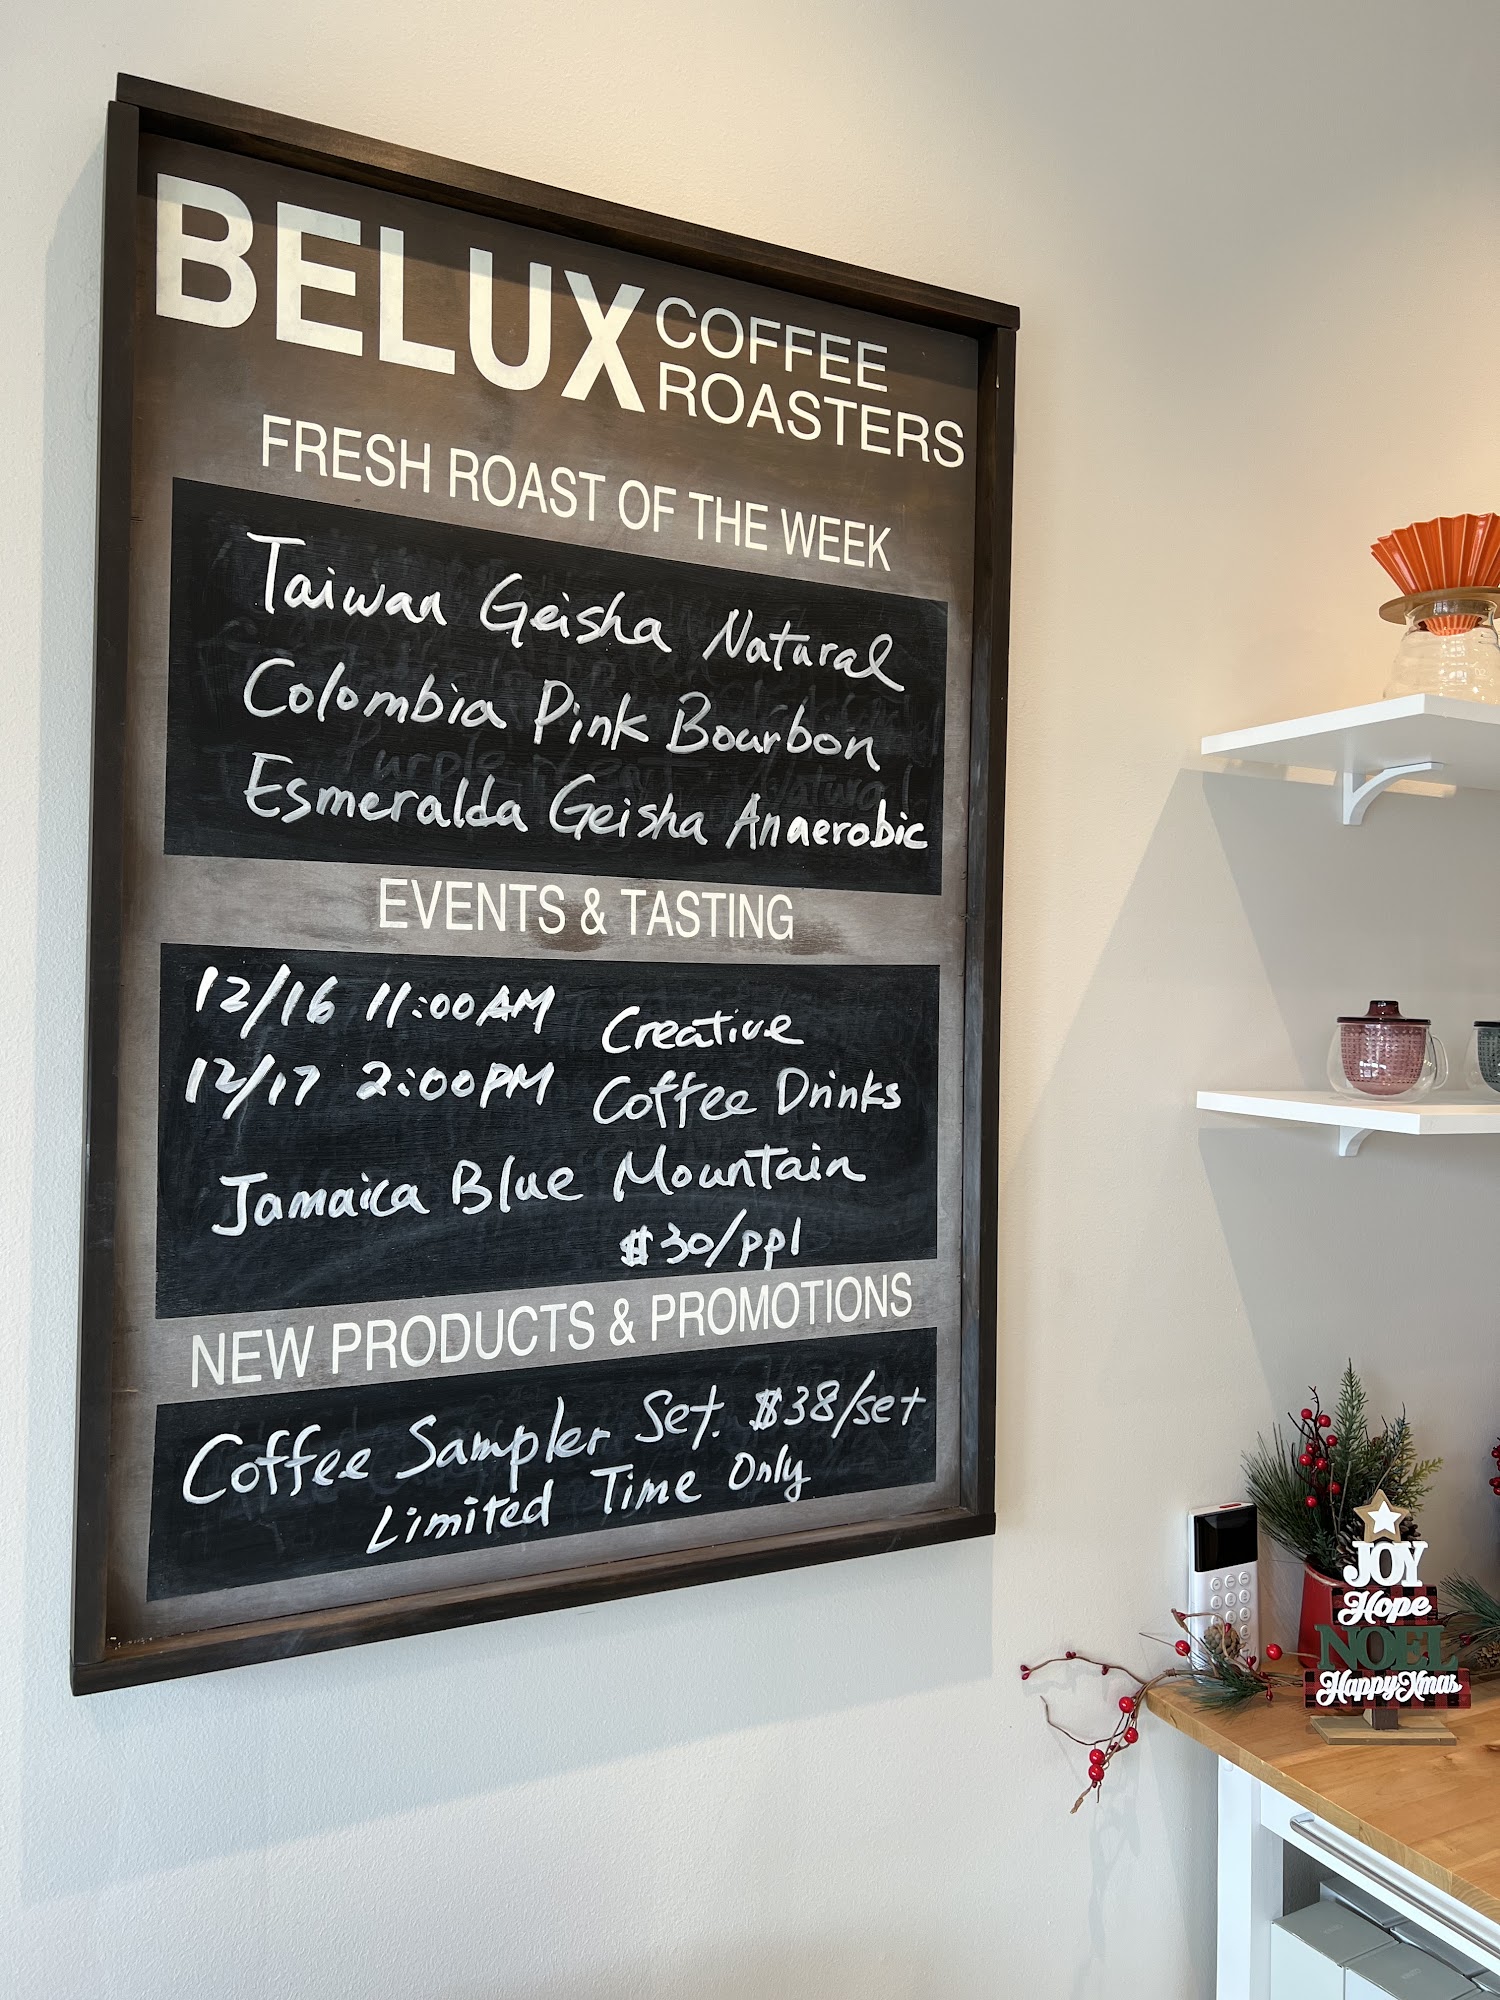 BELUX COFFEE
ROASTERS
FRESH ROAST OF THE WEEK
Taiwan Geisha Natural
Colombia Pink Bourbon
Esmeralda Geisha Anaerobic
EVENTS & TASTING
12/16 11:00AM Creative
12/17 2:00PM Coffee Drinks
Jamaica Blue Mountain
$30/ppl
NEW PRODUCTS & PROMOTIONS
Coffee Sampler Set. $38/set
Limited Time Only
JOY
Hope
NOEL
Happy Xmas